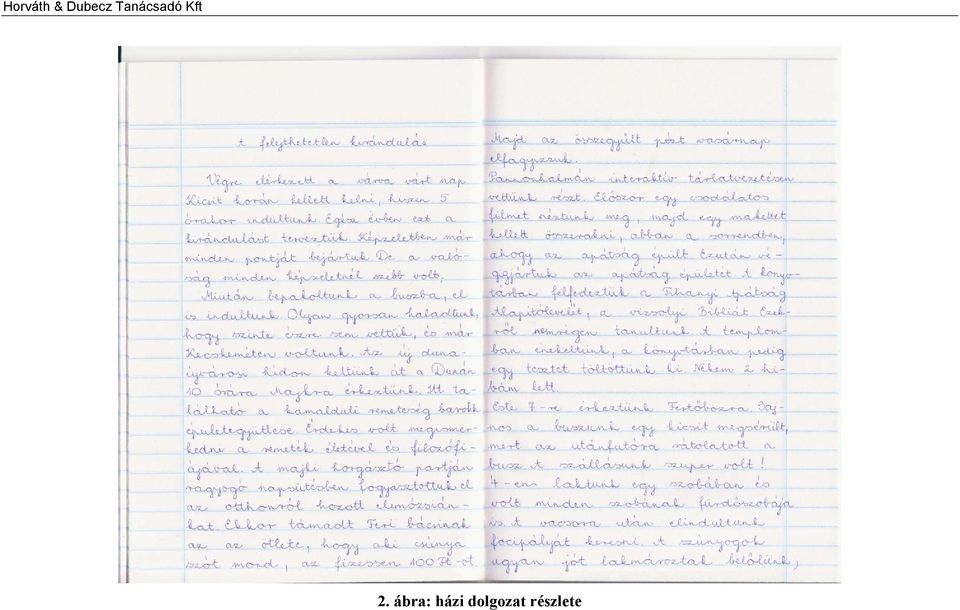 Horváth & Dubecz Tanácsadó Kft
A felejthetetlen kirándulás
Végre elérkezett a várva várt nap.
Kicsit korán kellett kelni, hiszen 5
órakor indultunk. Egész évben ezt a
kirándulást terveztük. Képzeletben már
minden pontját bejártuk. De a való-
ság minden képzeletnél szebb volt,
Miután bepakoltunk a buszba, el
is indultunk. Olyan gyorsan haladtunk,
hogy szinte észre sem vettük, és már
Kecskeméten voltunk. Az új duna-
újvárosi hídon keltünk át a Dunán
10 órára Majkra érkeztünk. Itt ta-
lálható a kamalduli remeteség barokk
épületegyüttese. Érdekes volt megismer-
kedne a remeték életével és filozófi-
ájával. A majki horgásztó partján
ragyogó napsütésben fogyasztottuk el
az otthonról hozott elemózsián-
kat. Ekkor támadt Feri bácsinak
az az ötlete, hogy aki csúnya
szót mond, az fizessen 100 Ft-ot
Majd az összegyűlt pézt vasárnap
elfagyizzuk.
Pannonhalmán interaktív tárlatvezetésen
vettünk részt. Először egy csodálatos
filmet néztünk meg, majd egy makettet
kellett összerakni, abban a sorrendben,
ahogy az apátság épült. Ezután vé-
gigjártuk az apátság épületét. A könyv-
tárban felfedeztük a Tihanyi Apátság
Alapítólevelét, a vizsolyi Bibliát. Ezek-
ről nemrégen tanultunk. A templom-
ban énekeltünk, a könyvtárban pedig
egy tesztet töltöttünk ki. Nekem 2 hi-
bám lett.
Este 7-re érkeztünk Fertőbozra. Saj-
nos a buszunk egy kicsit megsérült,
mert az utánfutóra rátolatott a
busz. A szállásunk szuper volt!
4-en laktunk egy szobában és
volt minden szobának fürdőszobája
is. A vacsora után elindultunk
focipályát keresni. A szúnyogok
ugyan jót lakmároztak belőlünk,
2. ábra: házi dolgozat részlete